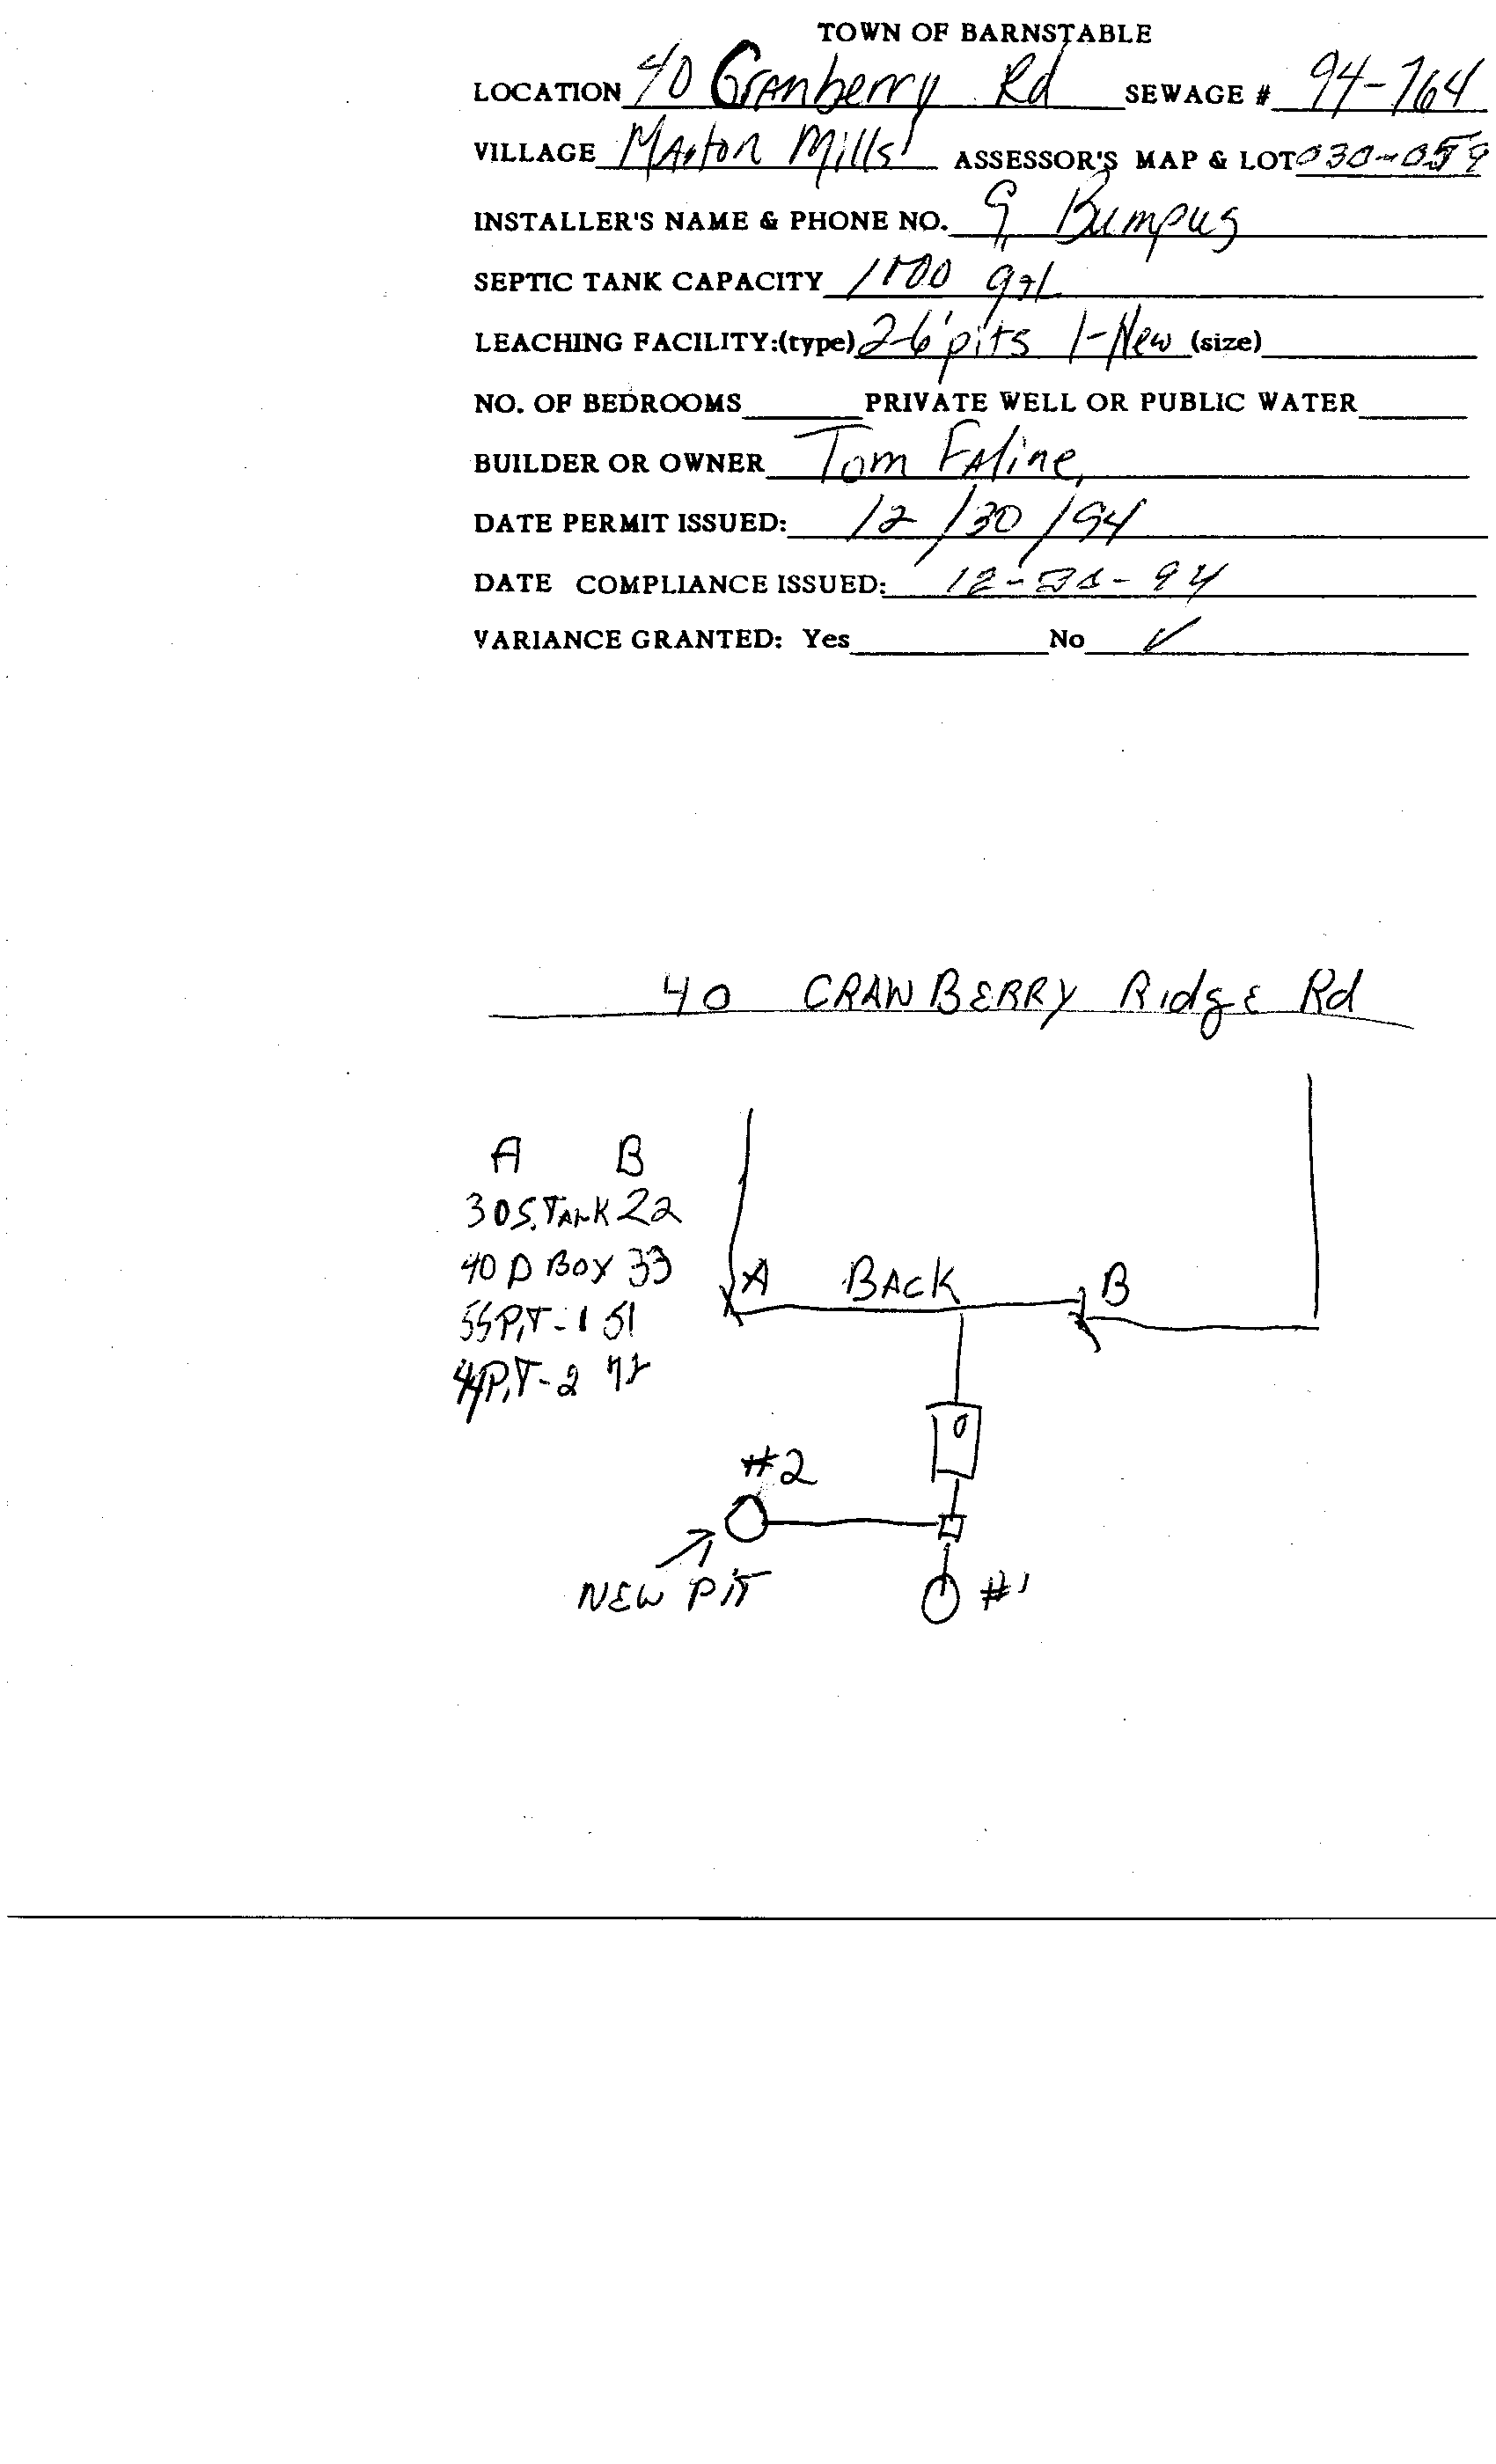 TOWN OF BARNSTABLE
LOCATION 40 Cranberry Rd SEWAGE # 94-764
VILLAGE Marston Mills ASSESSOR'S MAP & LOT 030-059
INSTALLER'S NAME & PHONE NO. G Bumpus
SEPTIC TANK CAPACITY 1000 gal
LEACHING FACILITY:(type) 2-6' pits 1-New (size)
NO. OF BEDROOMS PRIVATE WELL OR PUBLIC WATER
BUILDER OR OWNER Tom
DATE PERMIT ISSUED: 12/30/94
DATE COMPLIANCE ISSUED: 12- -94
VARIANCE GRANTED: Yes No ✓
40 CRAWBERRY Ridge Rd
A B
30 S.TANK 22
40 D BOX 33
55 PiT-1 51
PiT-2
A BACK B
#2
NEW PiT
#1